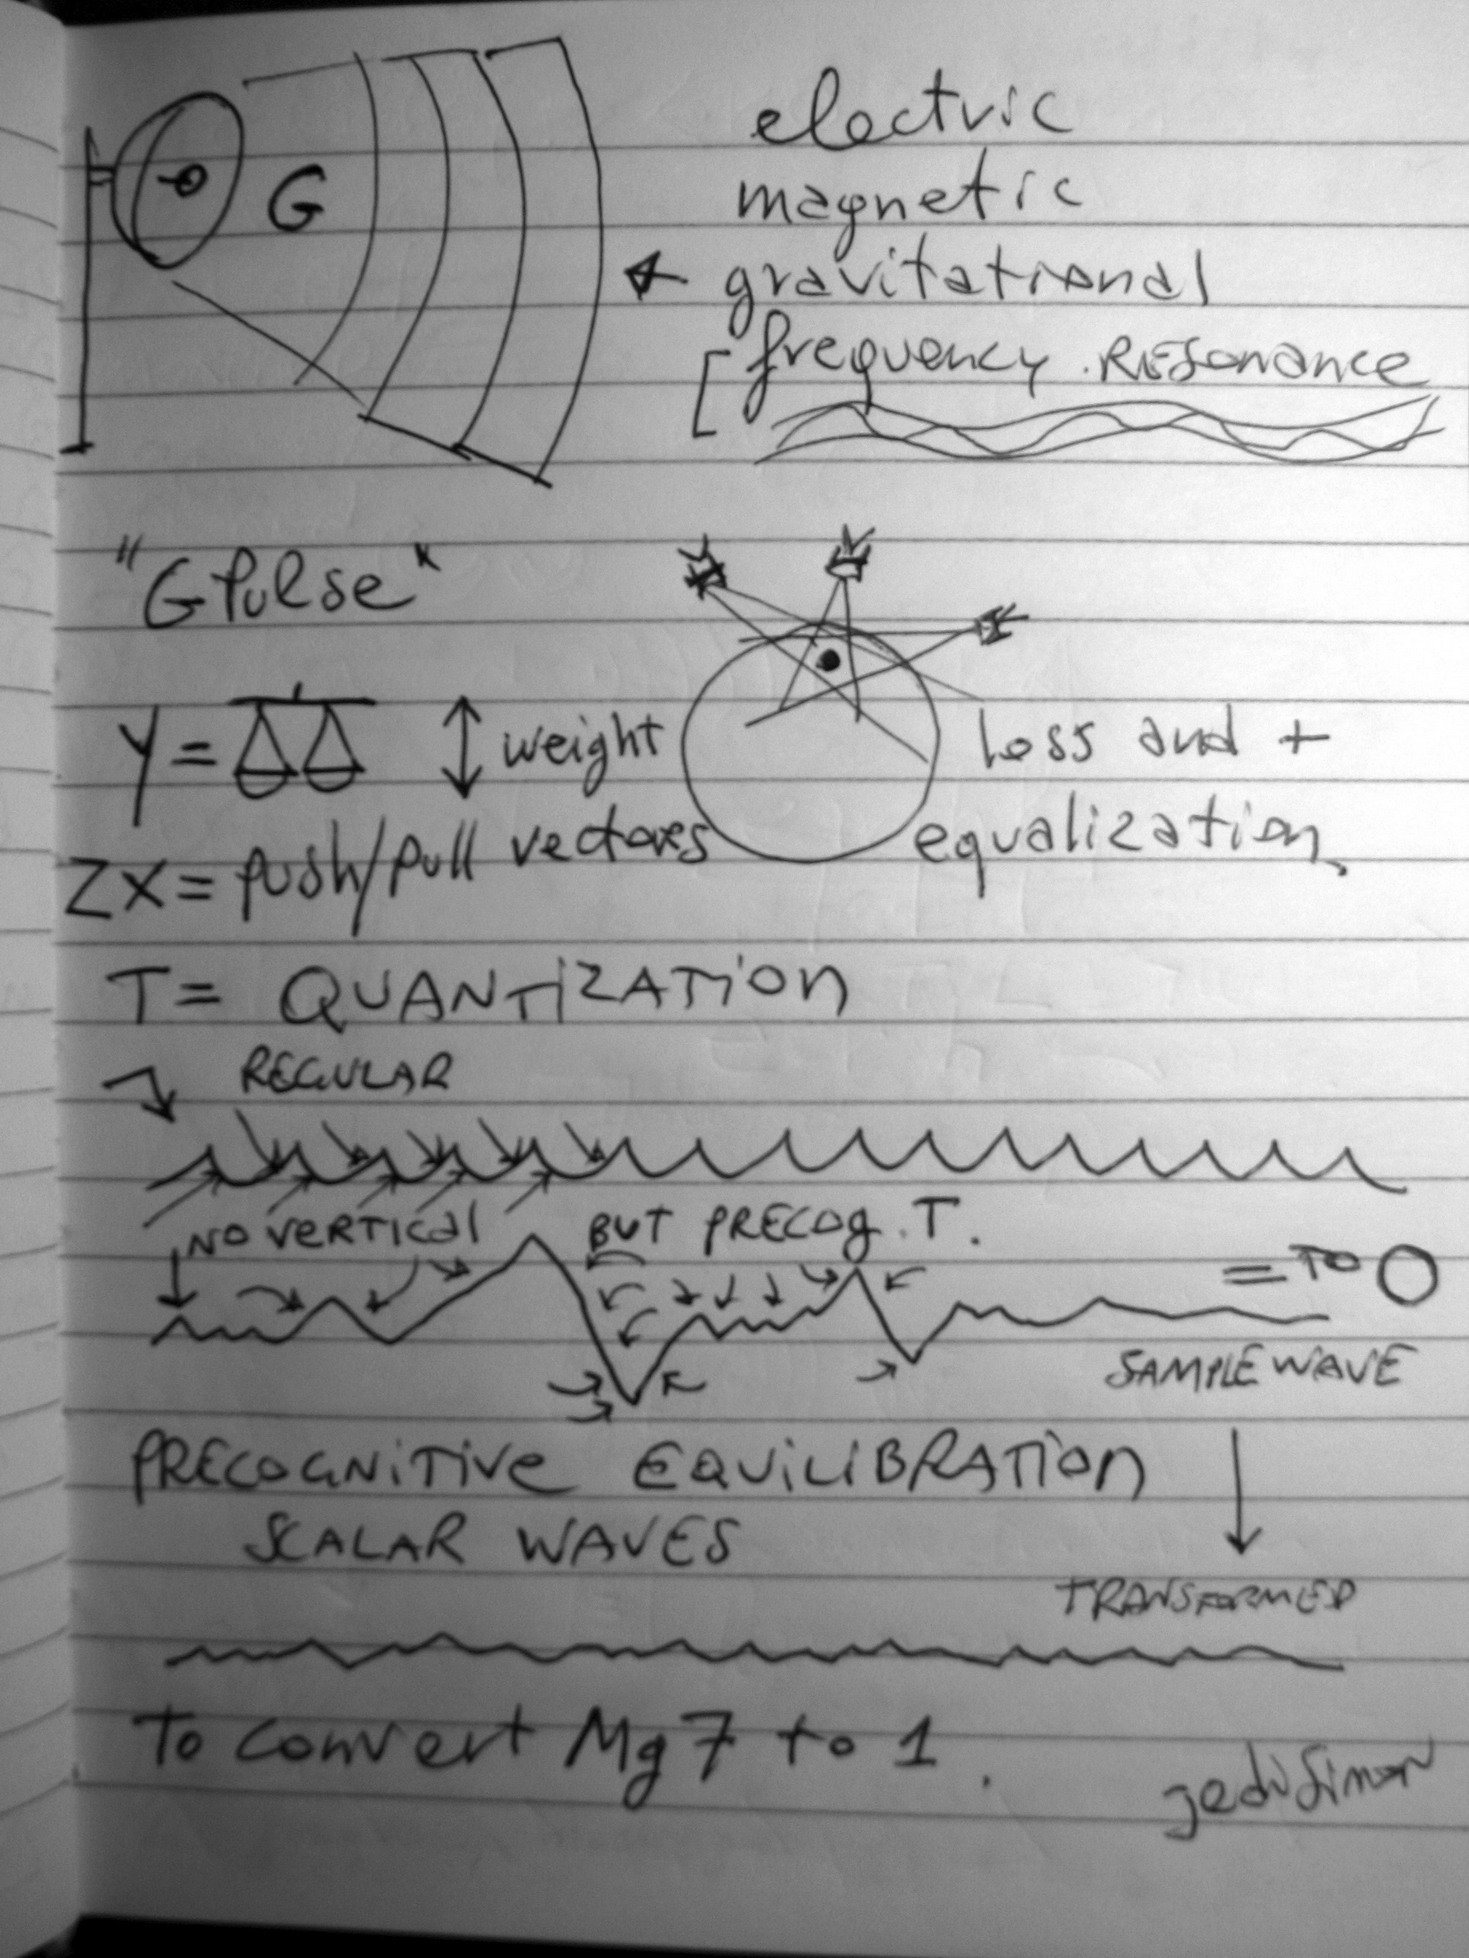 electric
magnetic
G
gravitational
[ frequency. RESonance
"GPulse"
Y = ↕ weight
loss and +
equalization
ZX = push/pull vectors
T = QUANTIZATION
REGULAR
NO VERTICAL BUT PRECOG. T.
= TO 0
SAMPLE WAVE
PRECOGNITIVE EQUILIBRATION
SCALAR WAVES
TRANSFORMED
To convert Mg 7 to 1.
jedisimon